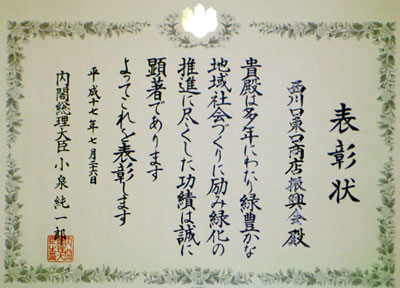 表彰状
西川口東口商店振興会殿
貴殿は多年にわたり緑豊かな
地域社会づくりに励み緑化の
推進に尽くした功績は誠に
顕著であります
よってこれを表彰します
平成十七年七月二六日
内閣総理大臣 小泉純一郎